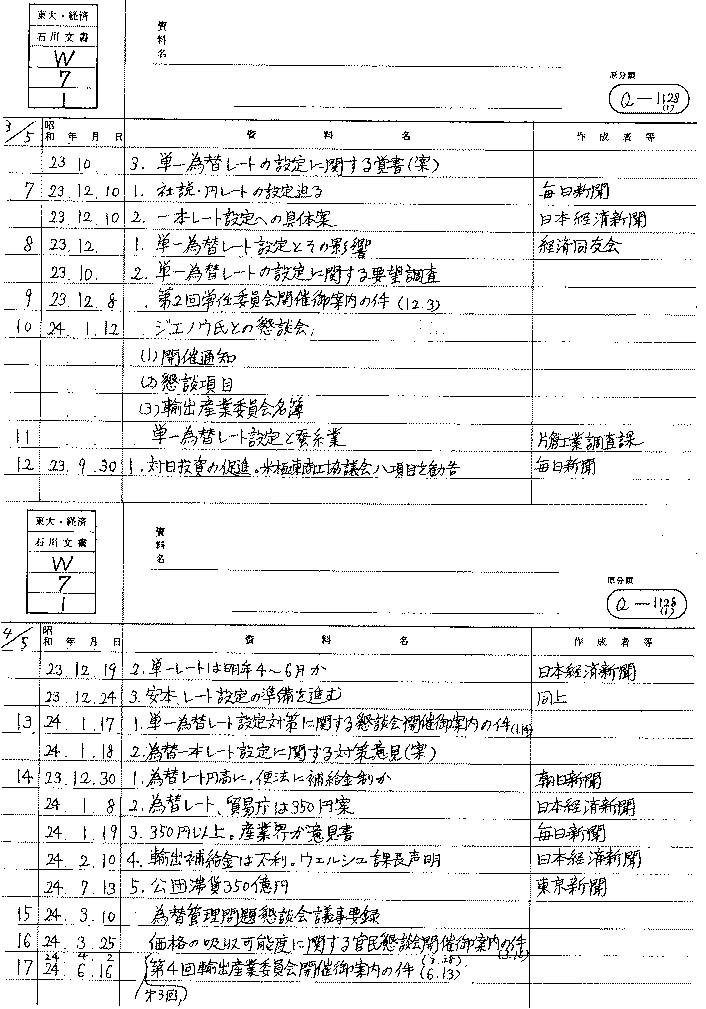 東大・経済
石川文書
W
7
1
資料名
原分類
Q-1128(1)
3/5 昭和 年 月 日 資料名 作成者等
23 10 3. 単一為替レートの設定に関する覚書(案)
7 23. 12. 10 1. 社説・円レートの設定迫る 毎日新聞
23. 12. 10 2. 一本レート設定への具体案 日本経済新聞
8 23. 12. 1. 単一為替レート設定とその影響 経済同友会
23. 10. 2. 単一為替レートの設定に関する要望調査
9 23. 12. 8 第2回常任委員会開催御案内の件 (12.3)
10 24. 1. 12 ジエノウ氏との懇談会
(1) 開催通知
(2) 懇談項目
(3) 輸出産業委員会名簿
11 単一為替レート設定と蚕糸業 片倉工業調査課
12 23. 9. 30 1. 対日投資の促進。米極東商工協議会八項目を勧告 毎日新聞
東大・経済
石川文書
W
7
1
資料名
原分類
Q-1128(1)
4/5 昭和 年 月 日 資料名 作成者等
23. 12. 19 2. 単一レートは明年4~6月か 日本経済新聞
23. 12. 24 3. 安本レート設定の準備を進む 同上
13 24. 1. 17 1. 単一為替レート設定対策に関する懇談会開催御案内の件
24. 1. 18 2. 為替一本レート設定に関する対策意見(案)
14 23. 12. 30 1. 為替レート円高に、便法に補給金制か 朝日新聞
24. 1. 8 2. 為替レート、貿易庁は350円案 日本経済新聞
24. 1. 19 3. 350円以上。産業界が意見書 毎日新聞
24. 2. 10 4. 輸出補給金は不利。ウェルシュ課長声明 日本経済新聞
24. 7. 13 5. 公団滞貨350億円 東京新聞
15 24. 3. 10 為替管理問題懇談会議事要録
16 24. 3. 25 価格の吸収可能度に関する官民懇談会開催御案内の件
24 4 2 (3.28)
17 24 6. 16 第4回輸出産業委員会開催御案内の件 (6.13)
(第3回,)